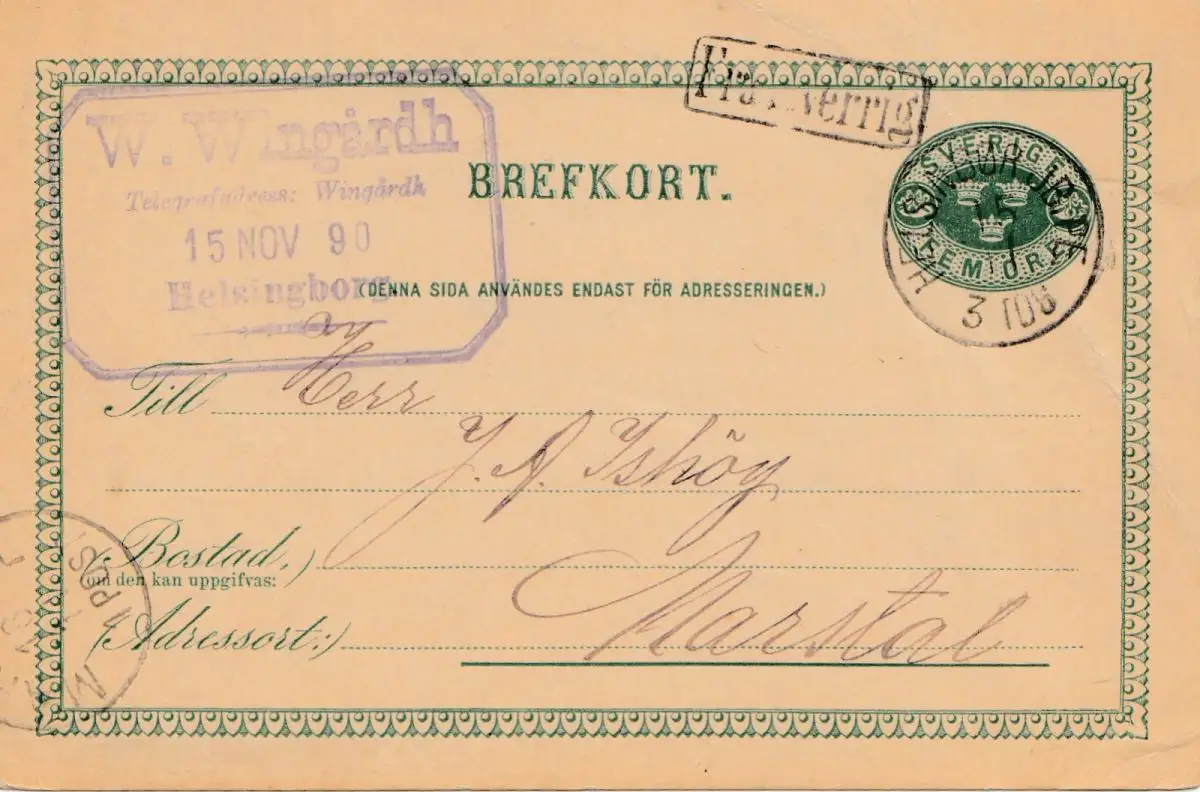 W. Wingårdh
Telegrafadress: Wingårdh
15 NOV 90
Helsingborg
Fra Sverrig
BREFKORT.
SVERIGE
FEM ÖRE
15
3 TOG
(DENNA SIDA ANVÄNDES ENDAST FÖR ADRESSERINGEN.)
Till Herr
J. A. Ishöy
(Bostad,)
om den kan uppgifvas:
(Adressort:) Marstal